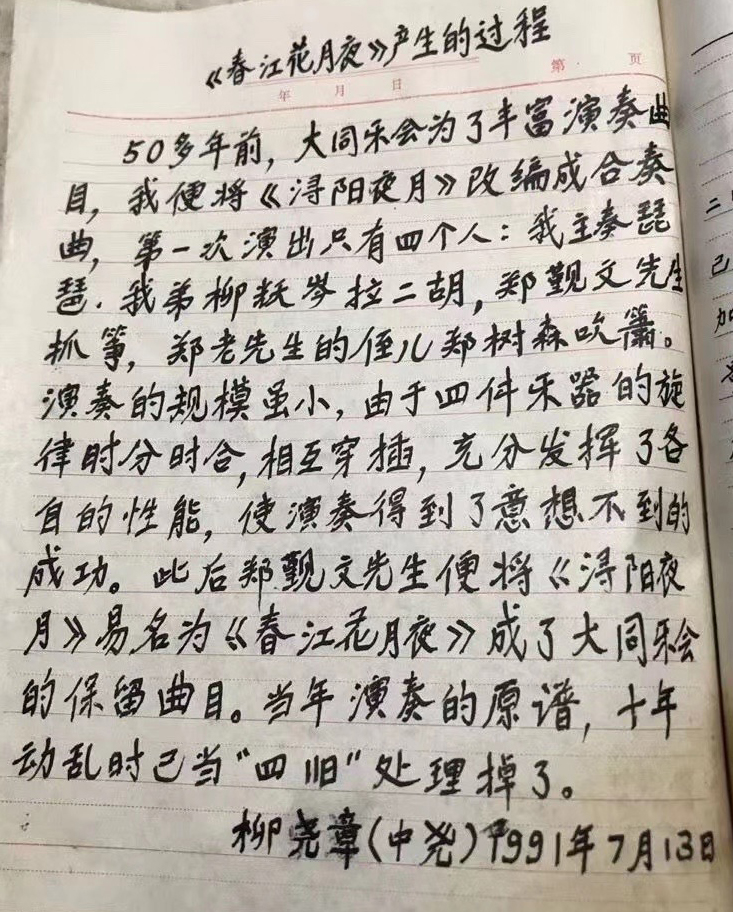 《春江花月夜》产生的过程
年 月 日
第 页
50多年前，大同乐会为了丰富演奏曲
目，我便将《浔阳夜月》改编成合奏
曲，第一次演出只有四个人：我主奏琵
琶．我弟柳妖岑拉二胡，郑觐文先生
抓筝，郑老先生的侄儿郑树森吹箫。
演奏的规模虽小，由于四件乐器的旋
律时分时合，相互穿插，充分发挥了各
自的性能，使演奏得到了意想不到的
成功。此后郑觐文先生便将《浔阳夜
月》易名为《春江花月夜》成了大同乐会
的保留曲目。当年演奏的原谱，十年
动乱时已当“四旧”处理掉了。
柳尧章（中尧）1991年7月13日
二
己
加